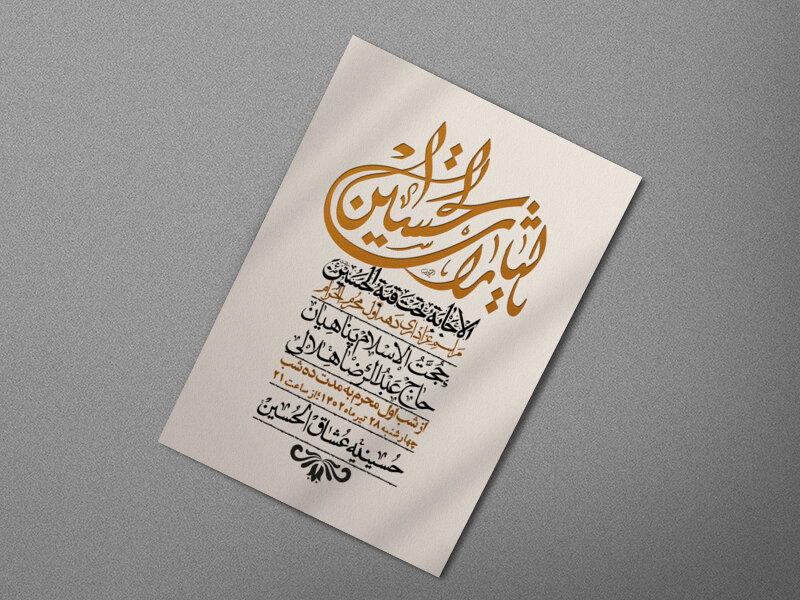 یا لثارات الحسین
الاجابة تحت قبة الحسین
مراسم عزاداری دهه اول محرم الحرام
حجت الاسلام پناهیان
حاج عبدالرضا هلالی
از شب اول محرم به مدت ده شب
چهارشنبه ۲۸ تیرماه ۱۴۰۲؛ از ساعت ۲۱
حسینیه عشاق الحسین